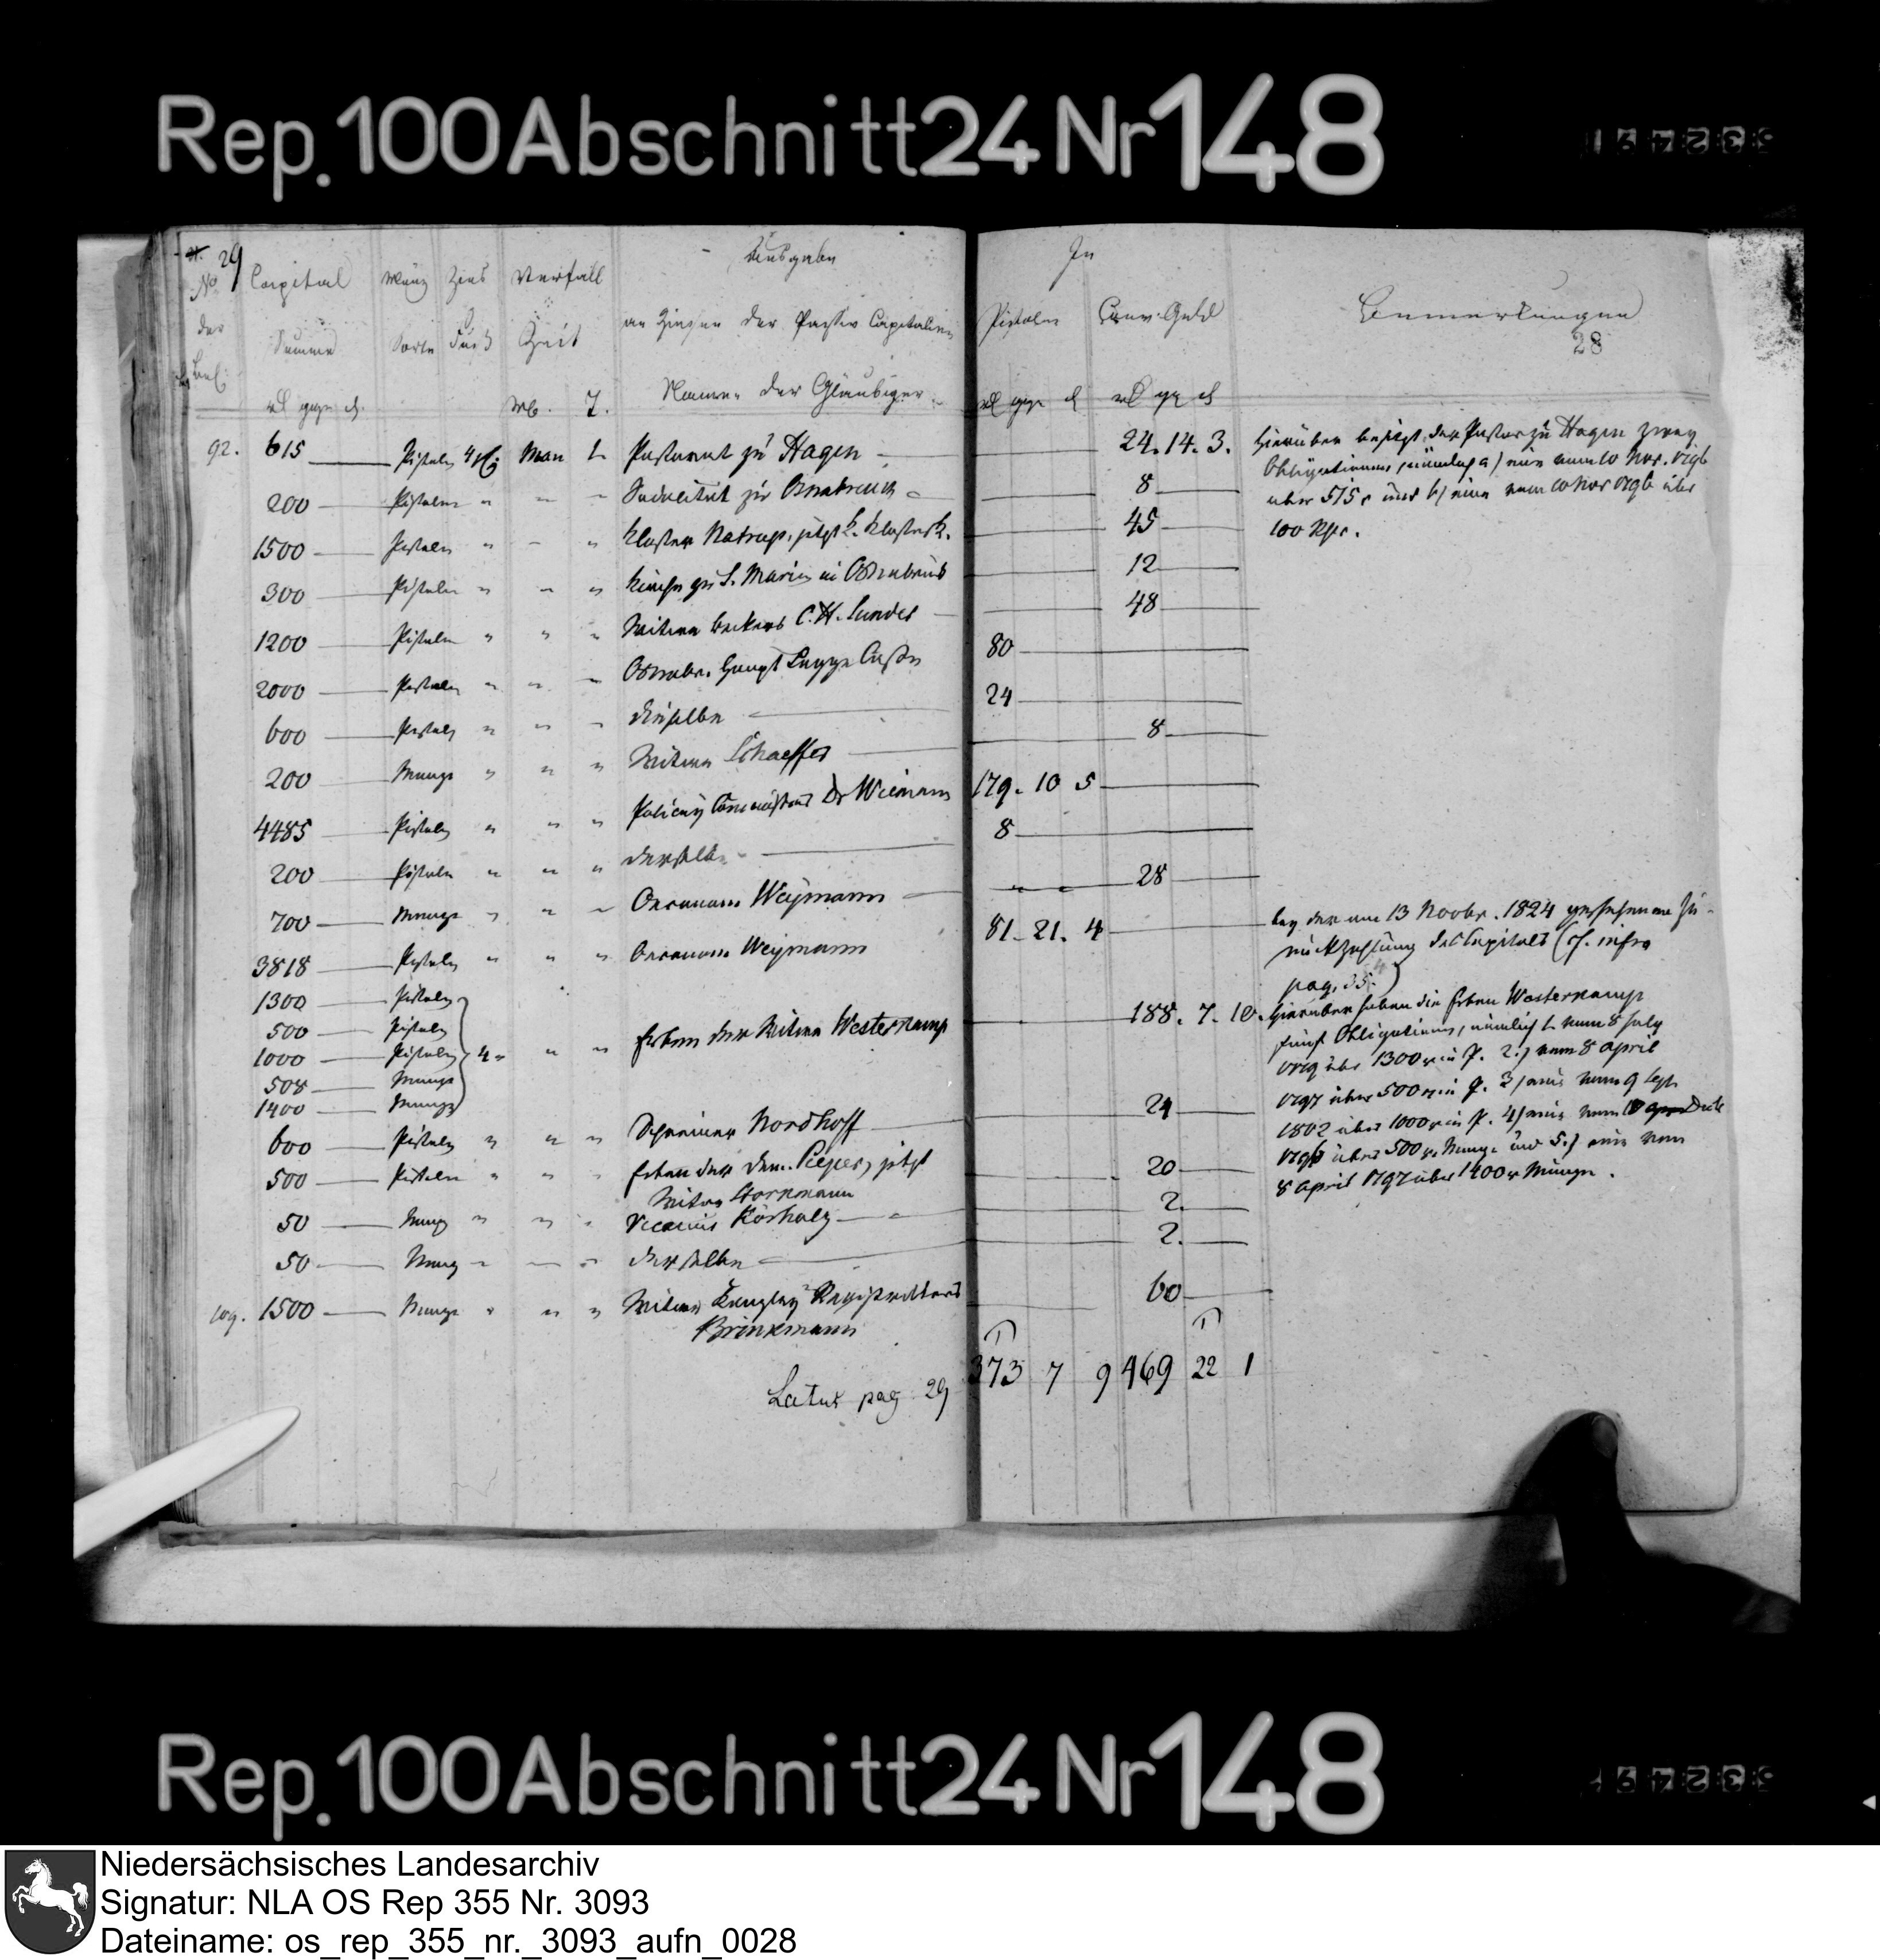 Rep. 100 Abschnitt 24 Nr 148
29
No Capital Münz Zins Verfall Ausgabe
der Summe Sorte Fuß Zeit an Zinsen der Passiv Capitalien
Bel:
Namen der Gläubiger
In
Pistolen Conv. Geld
Bemerkungen
28
92. 615 Pistolen 4 Mon 1 Pastorat zu Hagen 24. 14. 3.
200 Pistolen " " " Sodalitet zu Osnabrueck 8
1500 Pistolen " " " Kloster Natrup, jetzt K. Klosterk. 45
300 Pistolen " " " Kirche zu S. Marien in Osnabrück 12
1200 Pistolen " " " Witwe Beckers C. H. 48
2000 Pistolen " " " Osnabr. Haupt Legge Casse 80
600 Pistolen " " " dieselbe 24
200 Münze " " " Witwe Schaeffer 8
4485 Pistolen " " " Policey Commissair Dr Wiemann 179. 10 5
200 Pistolen " " " derselbe 8
700 Münze " " " Oeconom Weymann 28
3818 Pistolen " " " Oeconom Weymann 81. 21. 4
1300 Pistolen
500 Pistolen
1000 Pistolen 4 " " " Erben der Witwe Westerkamp 188. 7. 10.
508 Münze
1400 Münze
600 Pistolen " " " Schreiner Nordhoff 24
500 Pistolen " " " Erben der Dem. Pieper, jetzt 20
Witwe Storkmann
50 Münze " " " Vicarius Körholz 2.
50 Münze " " " derselbe 2.
109. 1500 Münze " " " Witwe Kanzley Registrators 60
Brinkmann
Latus pag. 29 373 7 9 469 22 1
Hierüber besitzt der Pastor zu Hagen zwey
Obligationen, nämlich a) eine vom 10 Nov. 1796
über 515 r und b) eine vom 10 Nov 1796 über
100 Rthr.
bey der am 13 Novbr. 1824 geschehenen Zu-
rückzahlung des Capitals (cf. infra
pag. 35)
Hierüber haben die Erben Westerkamp
fünf Obligationen, nämlich 1. vom 8 July
über 1300 r in P. 2.) vom 8 April
1797 über 500 r in P. 3) eine vom 9 Sept.
1802 über 1000 r in P. 4) eine vom
über 500 r. Münze und 5.) eine vom
8 April 1797 über 1400 r Münze.
Rep. 100 Abschnitt 24 Nr 148
Niedersächsisches Landesarchiv
Signatur: NLA OS Rep 355 Nr. 3093
Dateiname: os_rep_355_nr._3093_aufn_0028